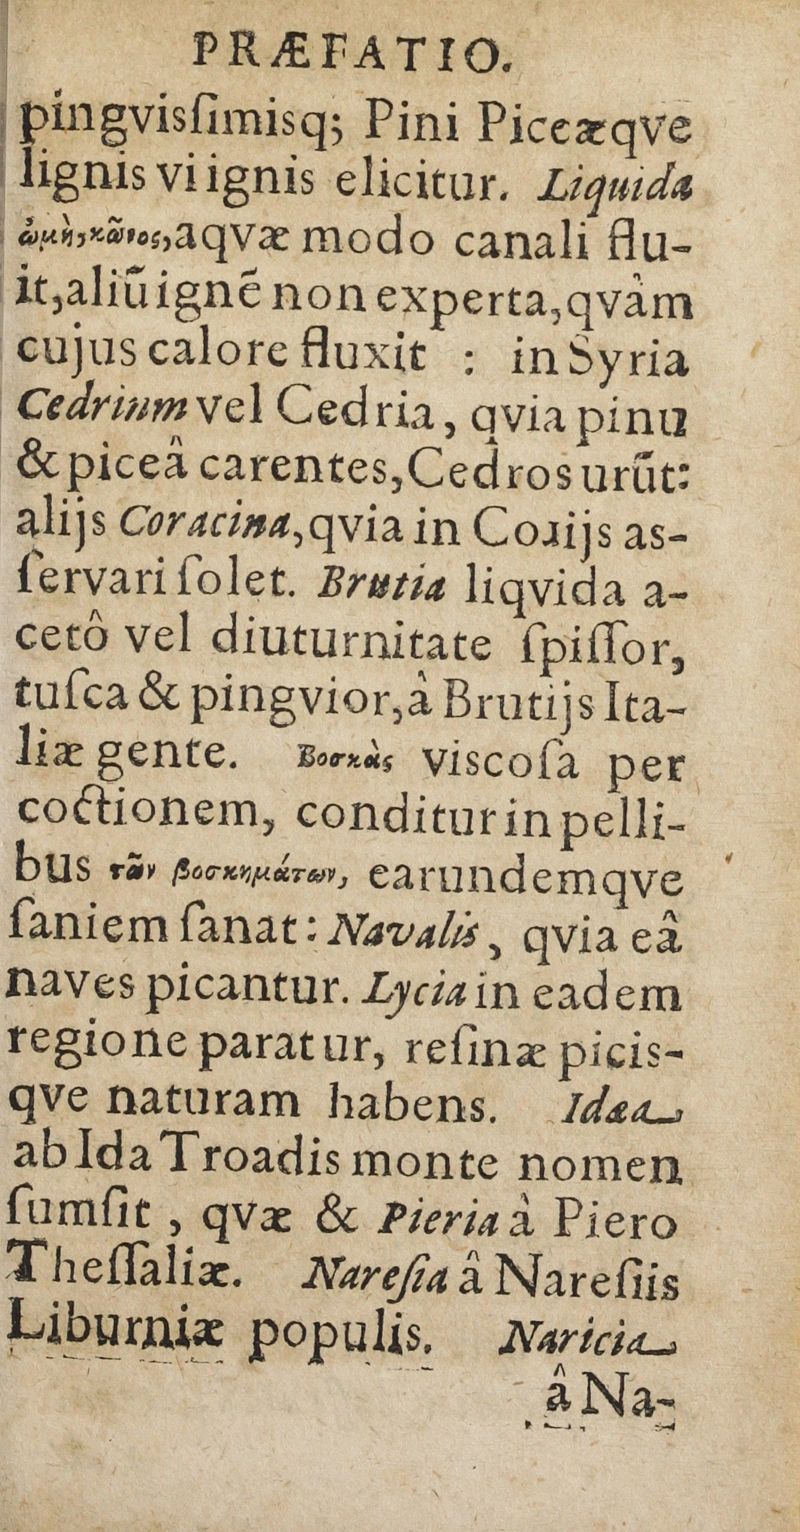 PRÆFATIO.
pingvisſimisq; Pini Piceæqve
lignis vi ignis elicitur. Liquida
ὠμὴ, κῶνος, aqvæ modo canali flu-
it, aliũ ignẽ non experta, qvàm
cujus calore fluxit : in Syria
Cedrium vel Cedria, qvia pinu
& piceâ carentes, Cedros urũt:
alijs Coracina, qvia in Corijs as-
ſervari ſolet. Brutia liqvida a-
cetô vel diuturnitate ſpiſſior,
tuſca & pingvior, à Brutijs Ita-
liæ gente. Βοσκὰς viscoſa per
coctionem, conditur in pelli-
bus τῶν βοσκημάτων, earundemqve
ſaniem ſanat : Navalis, qvia eâ
naves picantur. Lycia in eadem
regione paratur, reſinæ picis-
qve naturam habens. Idæa
ab Ida Troadis monte nomen
ſumſit, qvæ & Pieria à Piero
Theſſaliæ. Nareſia â Nareſiis
Liburniæ populis. Naricia
â Na-